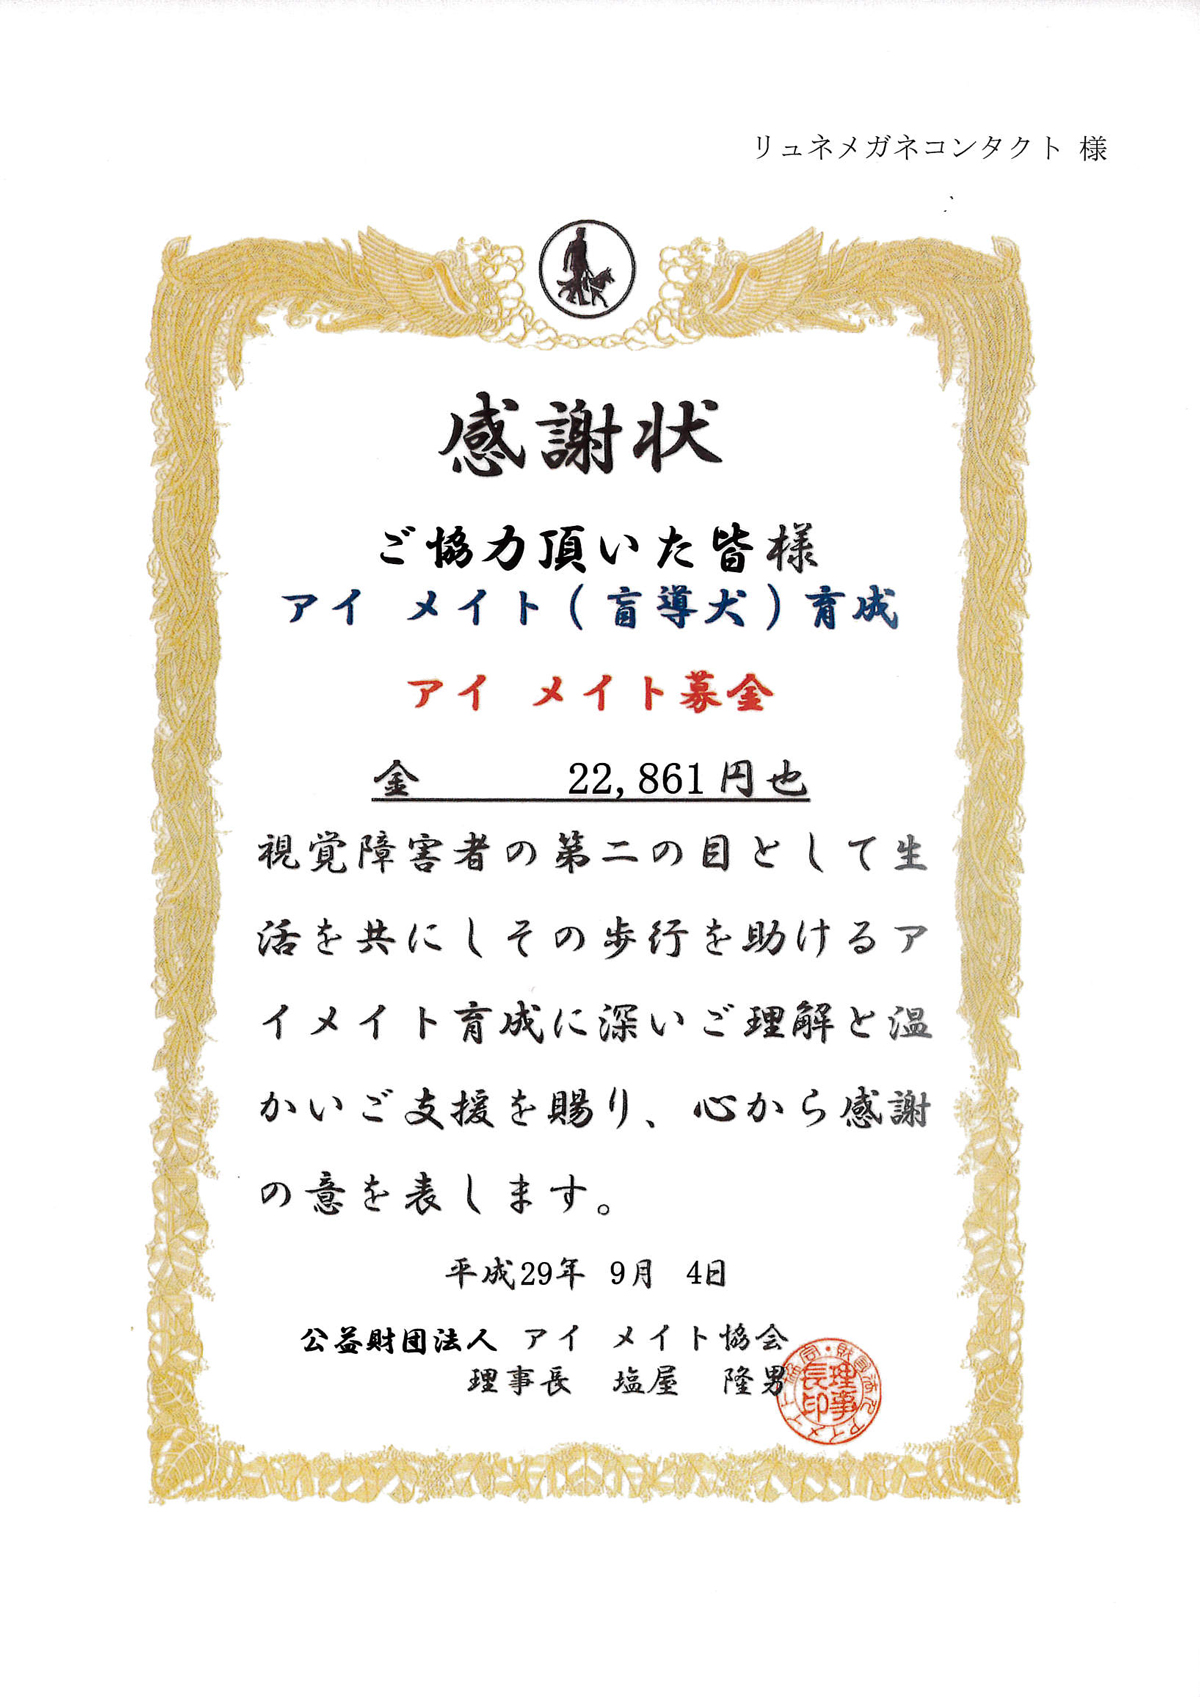 リュネメガネコンタクト 様
感謝状
ご協力頂いた皆様
アイ メイト(盲導犬)育成
アイ メイト募金
金 22,861円也
視覚障害者の第二の目として生
活を共にしその歩行を助けるア
イメイト育成に深いご理解と温
かいご支援を賜り、心から感謝
の意を表します。
平成29年 9月 4日
公益財団法人 アイ メイト協会
理事長 塩屋 隆男
理事
長印